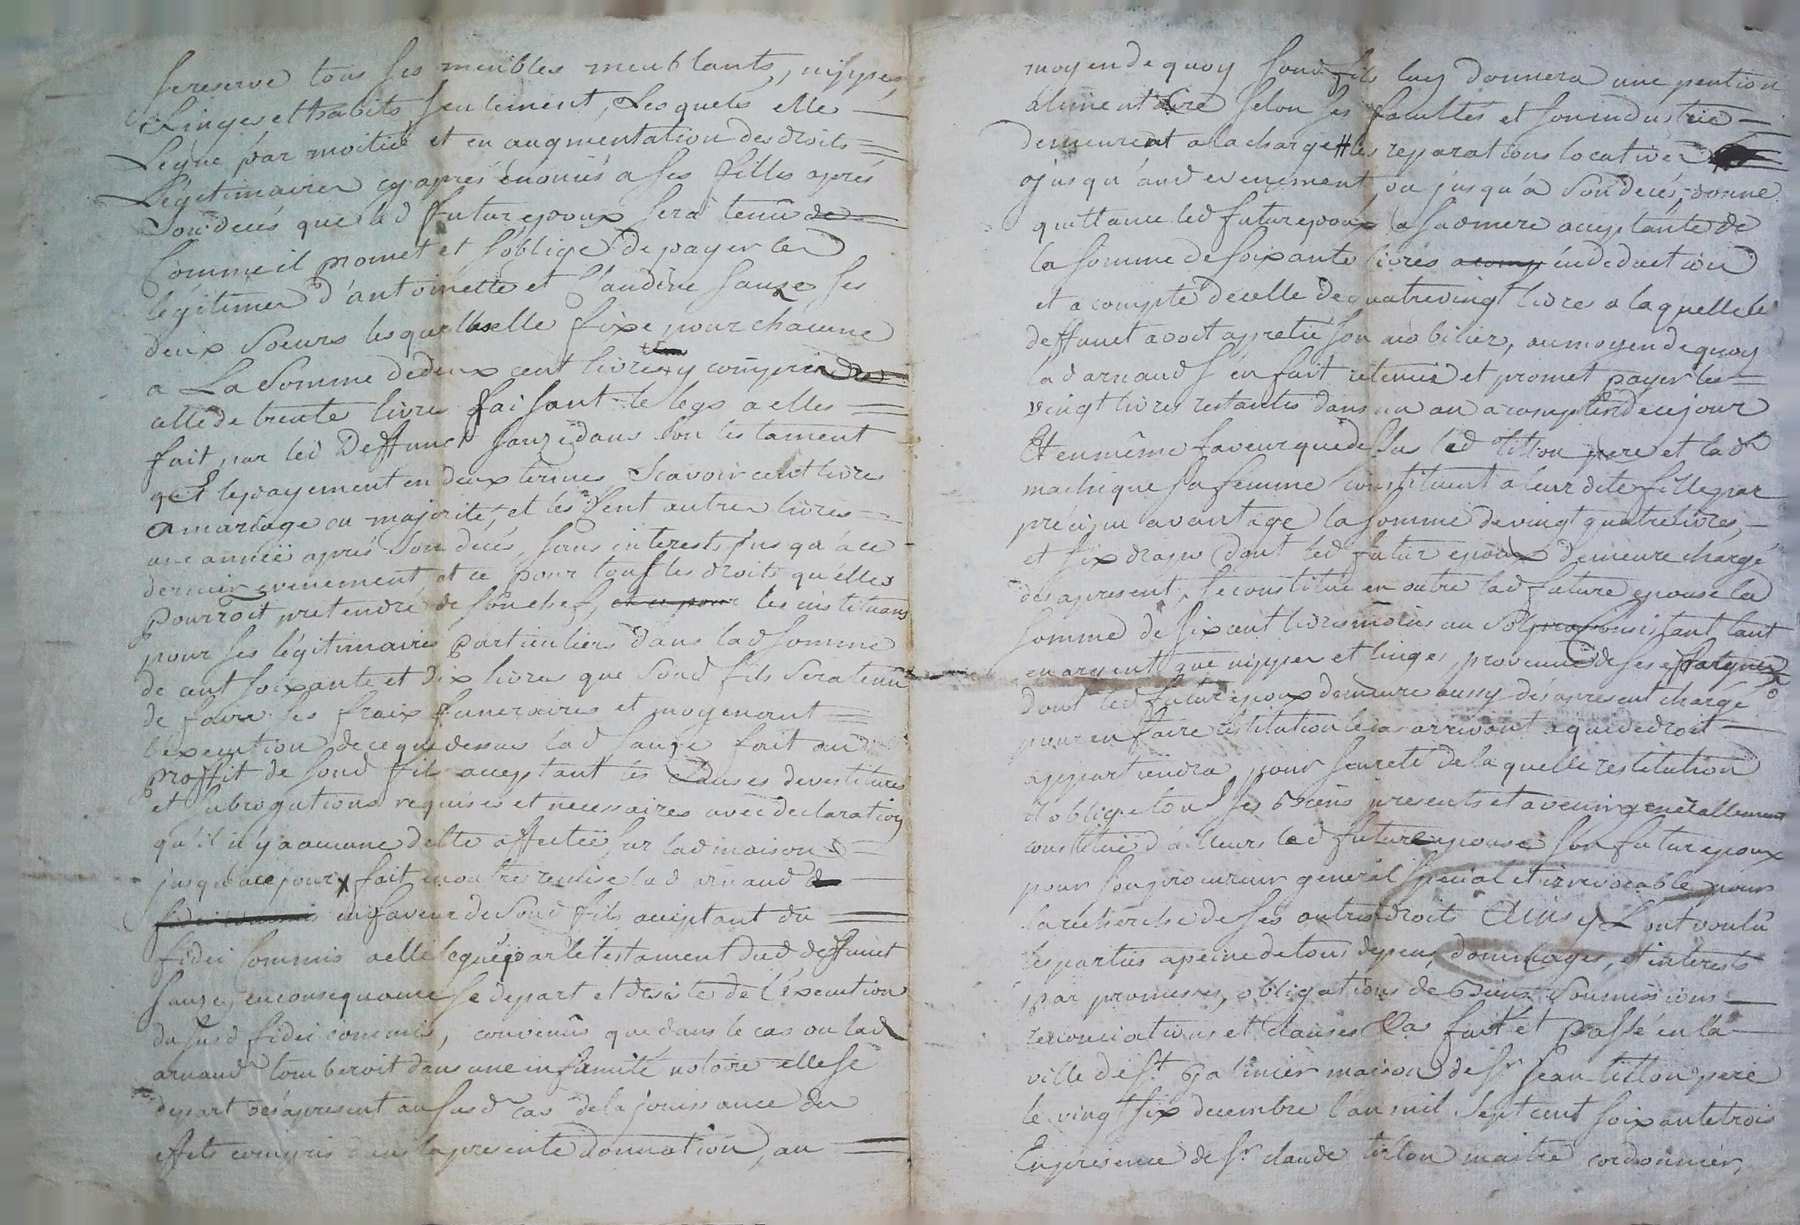 se reserve tous ses meubles meublants, nippes,
Linges et habits seulement, Lesquels elle
Legue par moitié et en augmentation des droits
Légitimaires cy après énoncés a ses filles après
Son decés que led futur epoux sera tenû de
Comme il promet et s'oblige de payer les
legitimes d'antoinette et Claudine Sauze ses
deux Soeurs lesquelles elle fixe pour chacune
a La Somme de deux cent livres y compris
celle de trente livres faisant le legs a elles
fait par led Deffunt Sauze dans Son testament
et le payement en deux termes Scavoir cent livres
a mariage ou majorité, et les Cent autres livres
une année après Son decés, sans interests jusqu'a ce
dernier evenement et ce pour tous les droits qu'elles
pourroit pretendre de Son chef, et ce pour les instituans
pour ses légitimaires particuliers dans lad somme
de cent soixante et dix livres que Sond fils Sera tenû
de faire les fraix funeraires et moyenant
l'execution de ce que dessus lad Sauze fait au
proffit de Sond fils acceptant les Clauses devestitures
et subrogations requises et necessaires avec declaration
qu'il n'y a aucune dette affectée sur lad maison
jusqu'a ce jour fait en outre remise lad arnaud
en faveur de Sond fils acceptant du
fidei Commis a elle legué par le testament dud deffunt
Sauze, en consequance se depart et desiste de l'execution
du susd fidei commis, convenû que dans le cas ou lad
arnaud tomberoit dans une infirmité notoire elle se
depart des apresent au susd cas de la jouissance des
effets compris dans la presente donnation, au
moyen de quoy Sond fils luy donnera une pention
alimentaire selon ses facultés et son industrie
demeurent a la charge les reparations locatives
jusqu'aud evenement, ou jusqu'à Son decés, donne
quittance led futur epoux a sad mere acceptante de
la somme de soixante livres acomp en deduction
et a compte de celle de quatre vingt livres a laquelle le
deffunt avoit apretié son mobilier, au moyen de quoy
lad arnaud s'en fait retenue et promet payer les
vingt livres restantes dans un an a compter de ce jour
Et en même faveur que dessus led titton pere et lad
sa femme Constituent a leur dite fille par
préciput avantage la somme de vingt quatre livres,
et six draps dont led futur epoux demeure chargé
des apresent, se constitue en outre lad future epouse la
somme de six cent livres consistant tant
en argent que nippes et linges provenus de ses epargnes
dont led futur epoux demeure aussy des apresent chargé
pour en faire restitution le cas arrivant a qui de droit
appartiendra, pour seureté de laquelle restitution
il oblige tous ses biens presents et avenir generallement
constitue d'ailleurs lad future epouse son futur epoux
pour son procureur general special et irrevocable pour
la recherche de ses autres droits Ainsy L'ont voulû
les parties a peine de tous depens, dommages, et interests
par promesses, obligations de biens Soumissions
renonciations et clauses fait et passé en la
ville de St galmier maison de Sr Jean titton pere
le vingt six decembre l'an mil sept cent soixante trois
En presence de Sr claude titton maitre cordonnier,